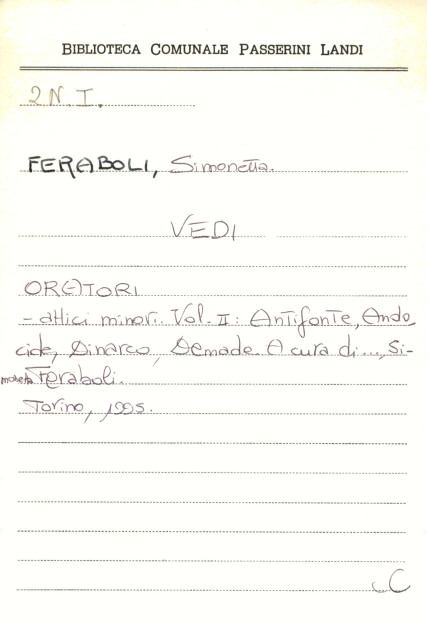 BIBLIOTECA COMUNALE PASSERINI LANDI
2 N. I.
FERABOLI, Simonetta.
VEDI
ORATORI
- attici minori. Vol. II: Antifonte, Ando
cide, Dinarco, Demade. A cura di ..., Si-
monetta Feraboli.
Torino, 1995.
C